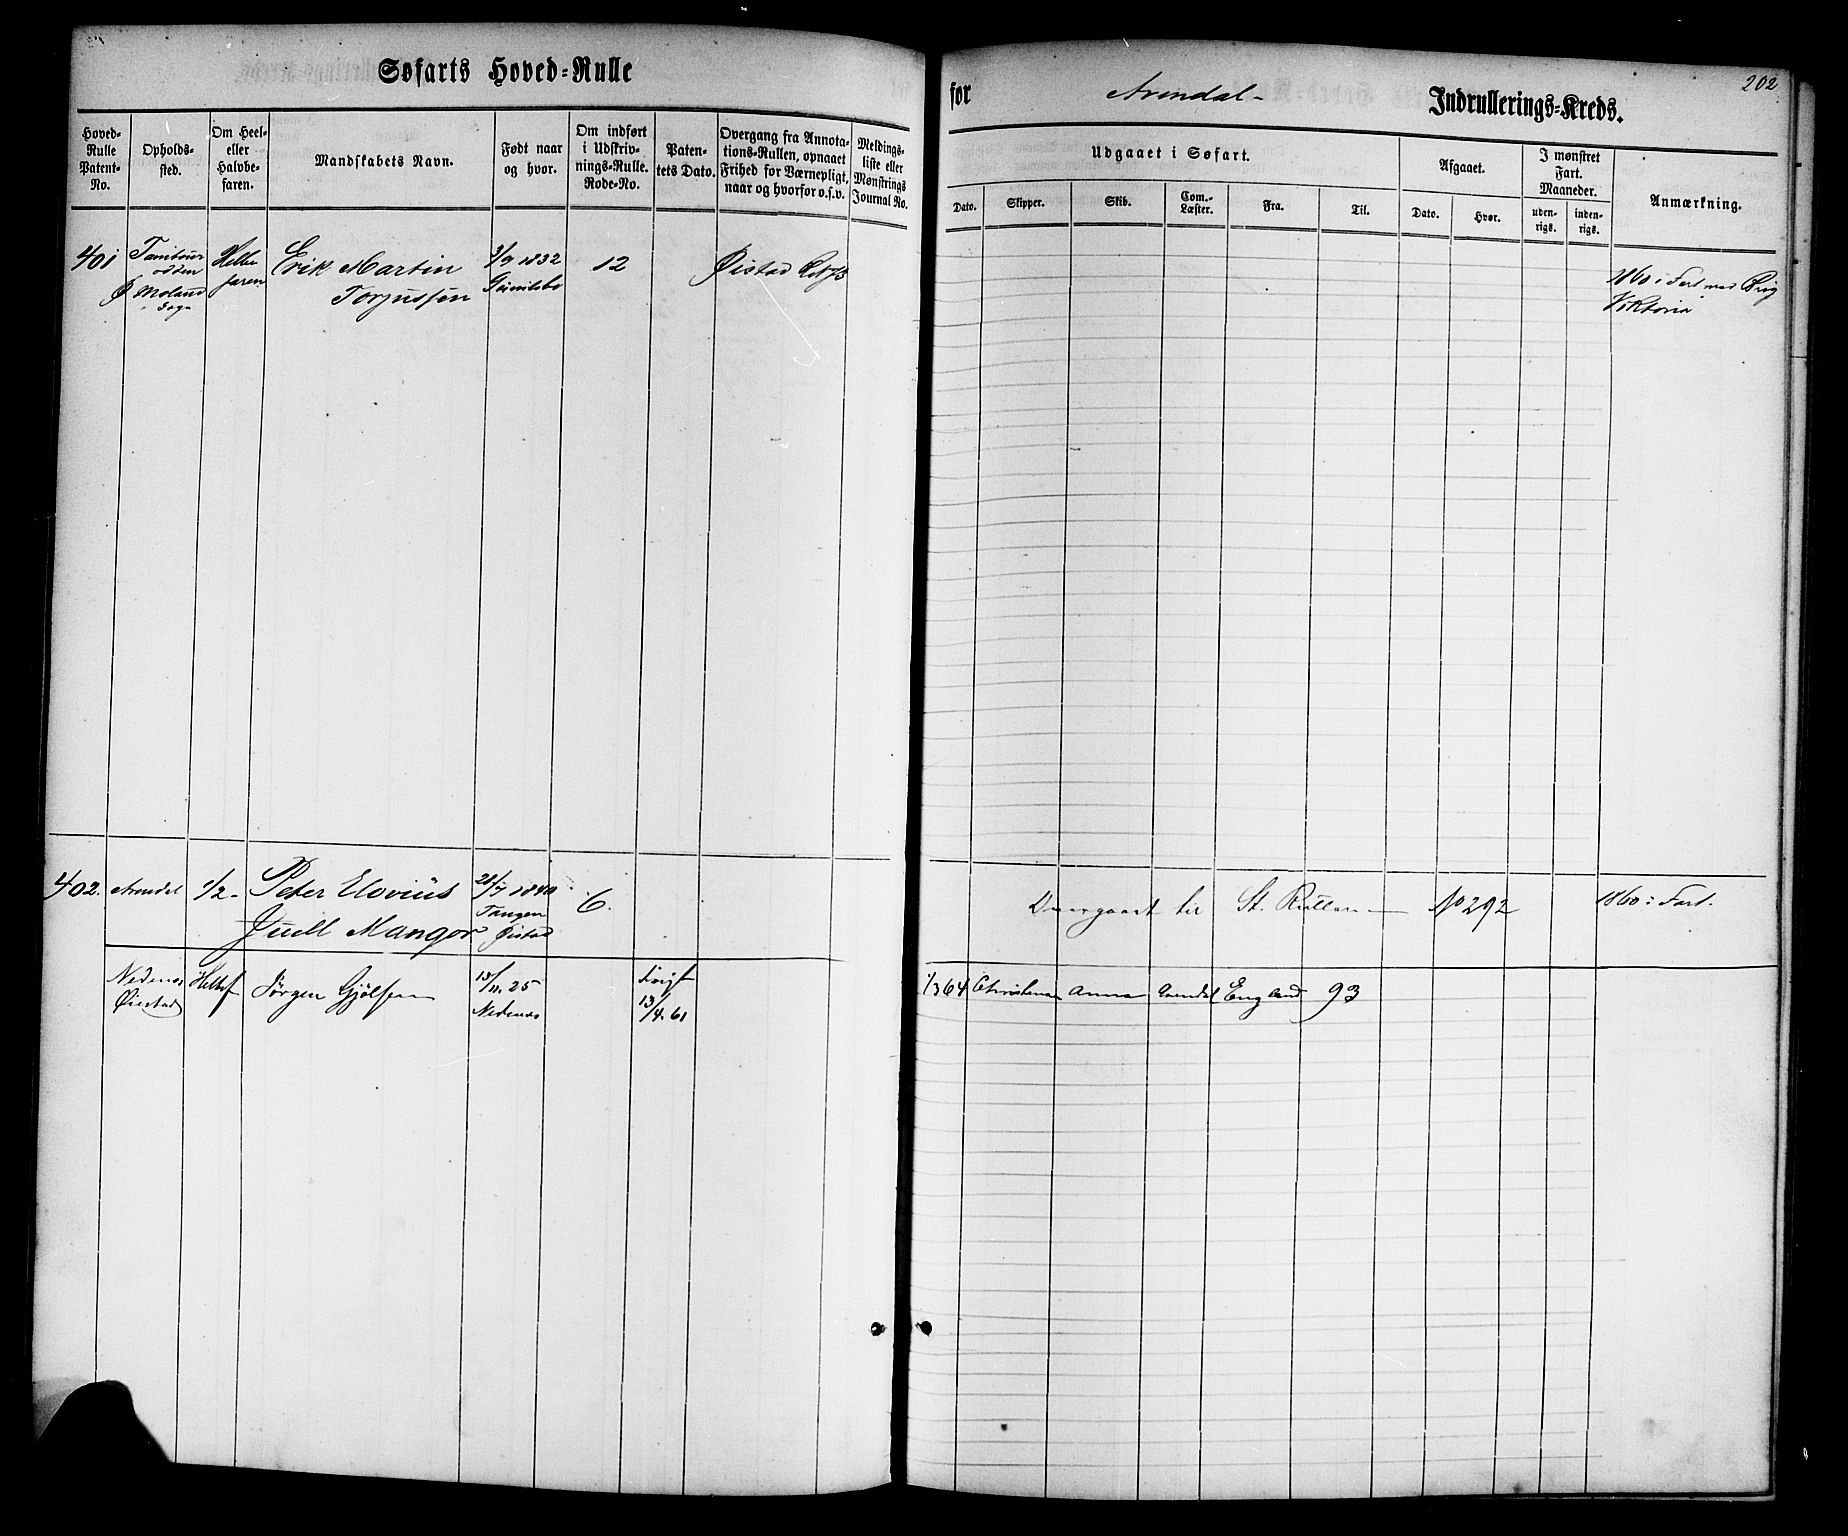 Søfarts Hoved=Rulle
Hoved-
Rulle
Patent-
No.
Opholds-
sted.
Om Heel-
eller
Halvbe-
faren.
Mandskabets Navn.
Født naar
og hvor.
Om indført
i Udskriv-
nings-Rulle.
Rode-No.
Paten-
tets Dato.
Overgang fra Annota-
tions-Rullen, opnaaet
Frihed for Værnepligt,
naar og hvorfor o.s.v.
Meldings-
liste eller
Mønstrings
Journal No.
401
Ø Moland
Sogn
faren
Erik Martin
Torjussen
3/9 1832
12
Øistad
402.
Arendal
1/2
Peter Elovius
Juell Mangor
28/7 1840
Tangen
Øistad
6.
Nedenes
Øiestad
Helbf
Jörgen Gjölsen
15/11. 25
Nedenes
13/4. 61
for Arendal Indrullerings=Kreds.
202
Udgaaet i Søfart.
Afgaaet.
I mønstret
Fart.
Maaneder.
Anmærkning.
Dato.
Skipper.
Skib.
Com.-
Læster.
Fra.
Til.
Dato.
Hvor.
uden-
rigs.
inden-
rigs.
1860 i Fart med Brig
Viktoria
Overgaaet til St. Rullen No 292
1860 i Fart.
1/3 64
Christensen
Anna
Arendal
England
93